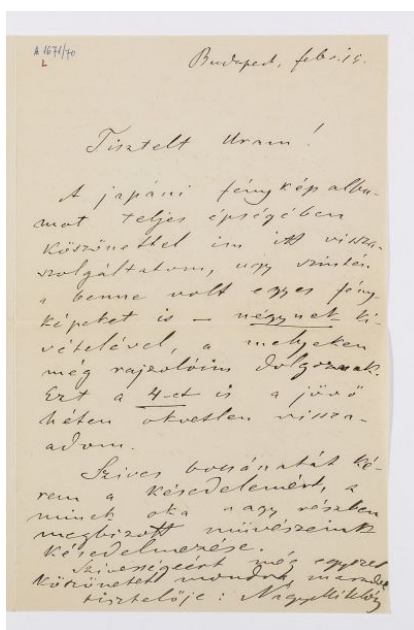 A 1671/70
L
Budapest, febr. 15.
Tisztelt Uram!
A japáni fényképalbu-
mot teljes épségében
köszönettel im itt vissza-
szolgáltatom, ugy szintén
a benne volt egyes fény-
képeket is – négynek ki-
vételével, a melyeken
még rajzolóim dolgoznak.
Ezt a 4-et is a jövő
héten okvetlen vissza-
adom.
Szives bocsánatát ké-
rem a késedelemért, a
minek oka nagy részben
megbizott művészeink
késedelmezése.
Szivességeért még egyszer
köszönetet mondva, maradok
tisztelője: Nagy Miklós